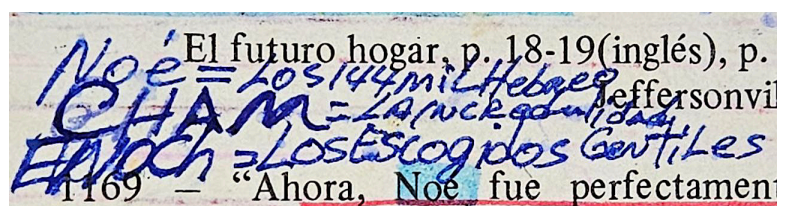 El futuro hogar, p. 18-19(inglés), p.
Noé = Los 144 miL Hebreo
Jeffersonvil
CHAM = LA incredulidad
ENoch = LOS EScogidos GentiLes
1169 – “Ahora, Noé fue perfectament